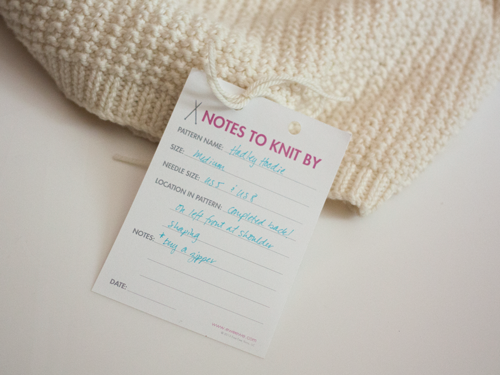 NOTES TO KNIT BY
PATTERN NAME: Hadley Hoodie
SIZE: Medium
NEEDLE SIZE: US 5 & US 8
LOCATION IN PATTERN: completed back!
On left front at shoulder
shaping
NOTES: * buy a zipper
DATE: